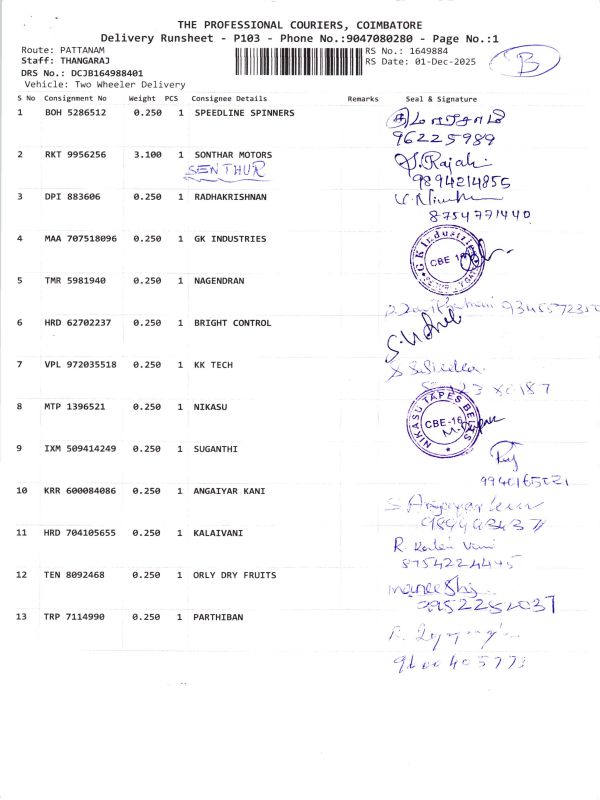 THE PROFESSIONAL COURIERS, COIMBATORE
Delivery Runsheet - P103 - Phone No.:9047080280 - Page No.:1
Route: PATTANAM RS No.: 1649884
Staff: THANGARAJ RS Date: 01-Dec-2025 B
DRS No.: DCJB164988401
Vehicle: Two Wheeler Delivery
S No Consignment No Weight PCS Consignee Details Remarks Seal & Signature
1 BOH 5286512 0.250 1 SPEEDLINE SPINNERS
96225989
2 RKT 9956256 3.100 1 SONTHAR MOTORS S.Rajah
SENTHUR 9894214855
3 DPI 883606 0.250 1 RADHAKRISHNAN
8754771440
4 MAA 707518096 0.250 1 GK INDUSTRIES
GK Industries CBE
5 TMR 5981940 0.250 1 NAGENDRAN
6 HRD 62702237 0.250 1 BRIGHT CONTROL
7 VPL 972035518 0.250 1 KK TECH
8 MTP 1396521 0.250 1 NIKASU
NIKASU TAPES BELTS CBE-16
9 IXM 509414249 0.250 1 SUGANTHI
9940165021
10 KRR 600084086 0.250 1 ANGAIYAR KANI
11 HRD 704105655 0.250 1 KALAIVANI
8754224445
12 TEN 8092468 0.250 1 ORLY DRY FRUITS
13 TRP 7114990 0.250 1 PARTHIBAN
9600405773